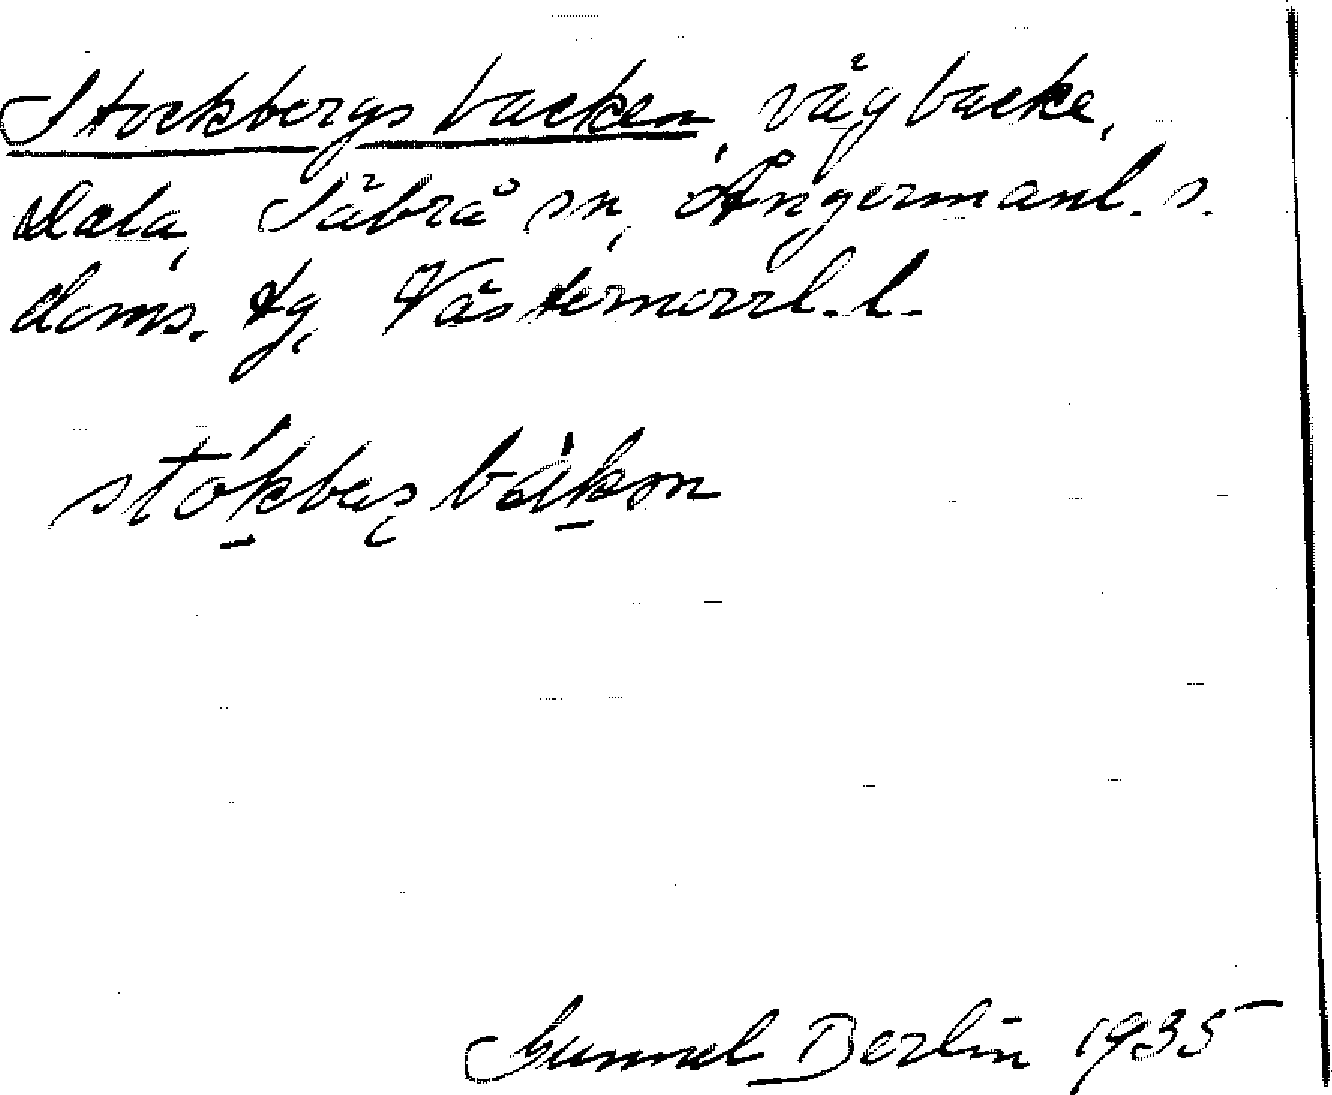 Stockbergsbacken vägbacke,
Dala, Säbrå sn, Ångermanl. s.
doms. tg, Västernorrl. l.
stókbeʂ bàkən
Gunnel Berlin 1935